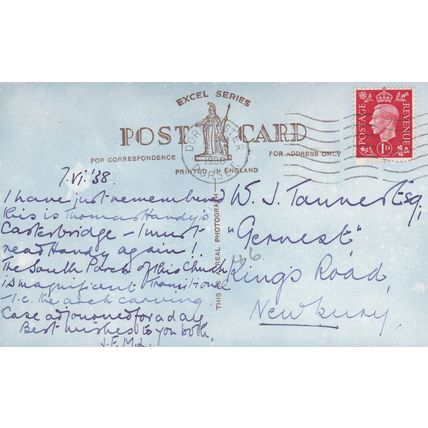 EXCEL SERIES
POST CARD
FOR CORRESPONDENCE
FOR ADDRESS ONLY
PRINTED IN ENGLAND
THIS IS A REAL PHOTOGRAPH
POSTAGE REVENUE
1D
1938
7.VI.'38.
I have just remembered
this is Thomas Hardy's
Casterbridge – I must
read Hardy again!
The South Porch of this Church
is magnificent Transitional
– i.e. the arch carving
Case adjourned for a day
Best wishes to you both,
J.F.M.L.
W. J. Tanner Esq,
"Gernest"
46.
Kings Road,
Newbury.